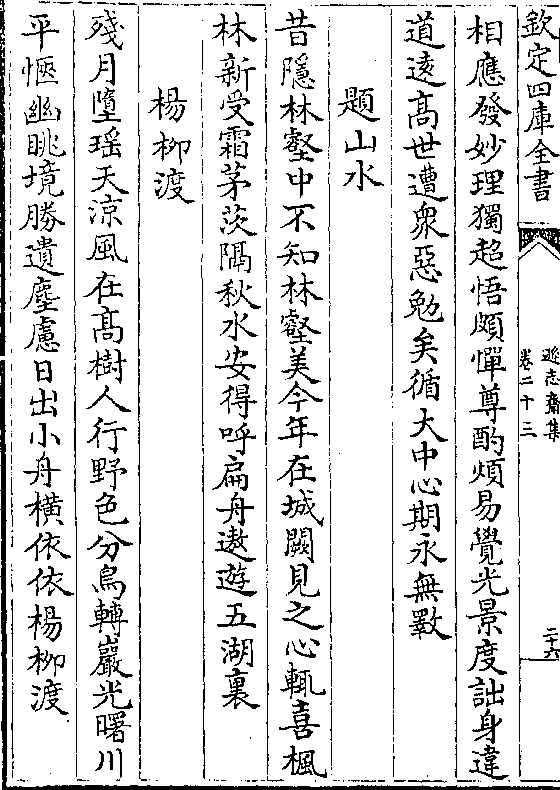 欽定四庫全書
遜志齋集
卷二十三
二十六
相應發妙理獨超悟頗憚尊酌煩易覺光景度詘身違
道逺髙世遭衆惡勉矣循大中心期永無斁
題山水
昔隱林壑中不知林壑美今年在城闕見之心輒喜楓
林新受霜茅茨隔秋水安得呼扁舟遨遊五湖裏
楊柳渡
殘月墮瑶天涼風在髙樹人行野色分鳥轉巖光曙川
平愜幽眺境勝遺塵慮日出小舟橫依依楊柳渡